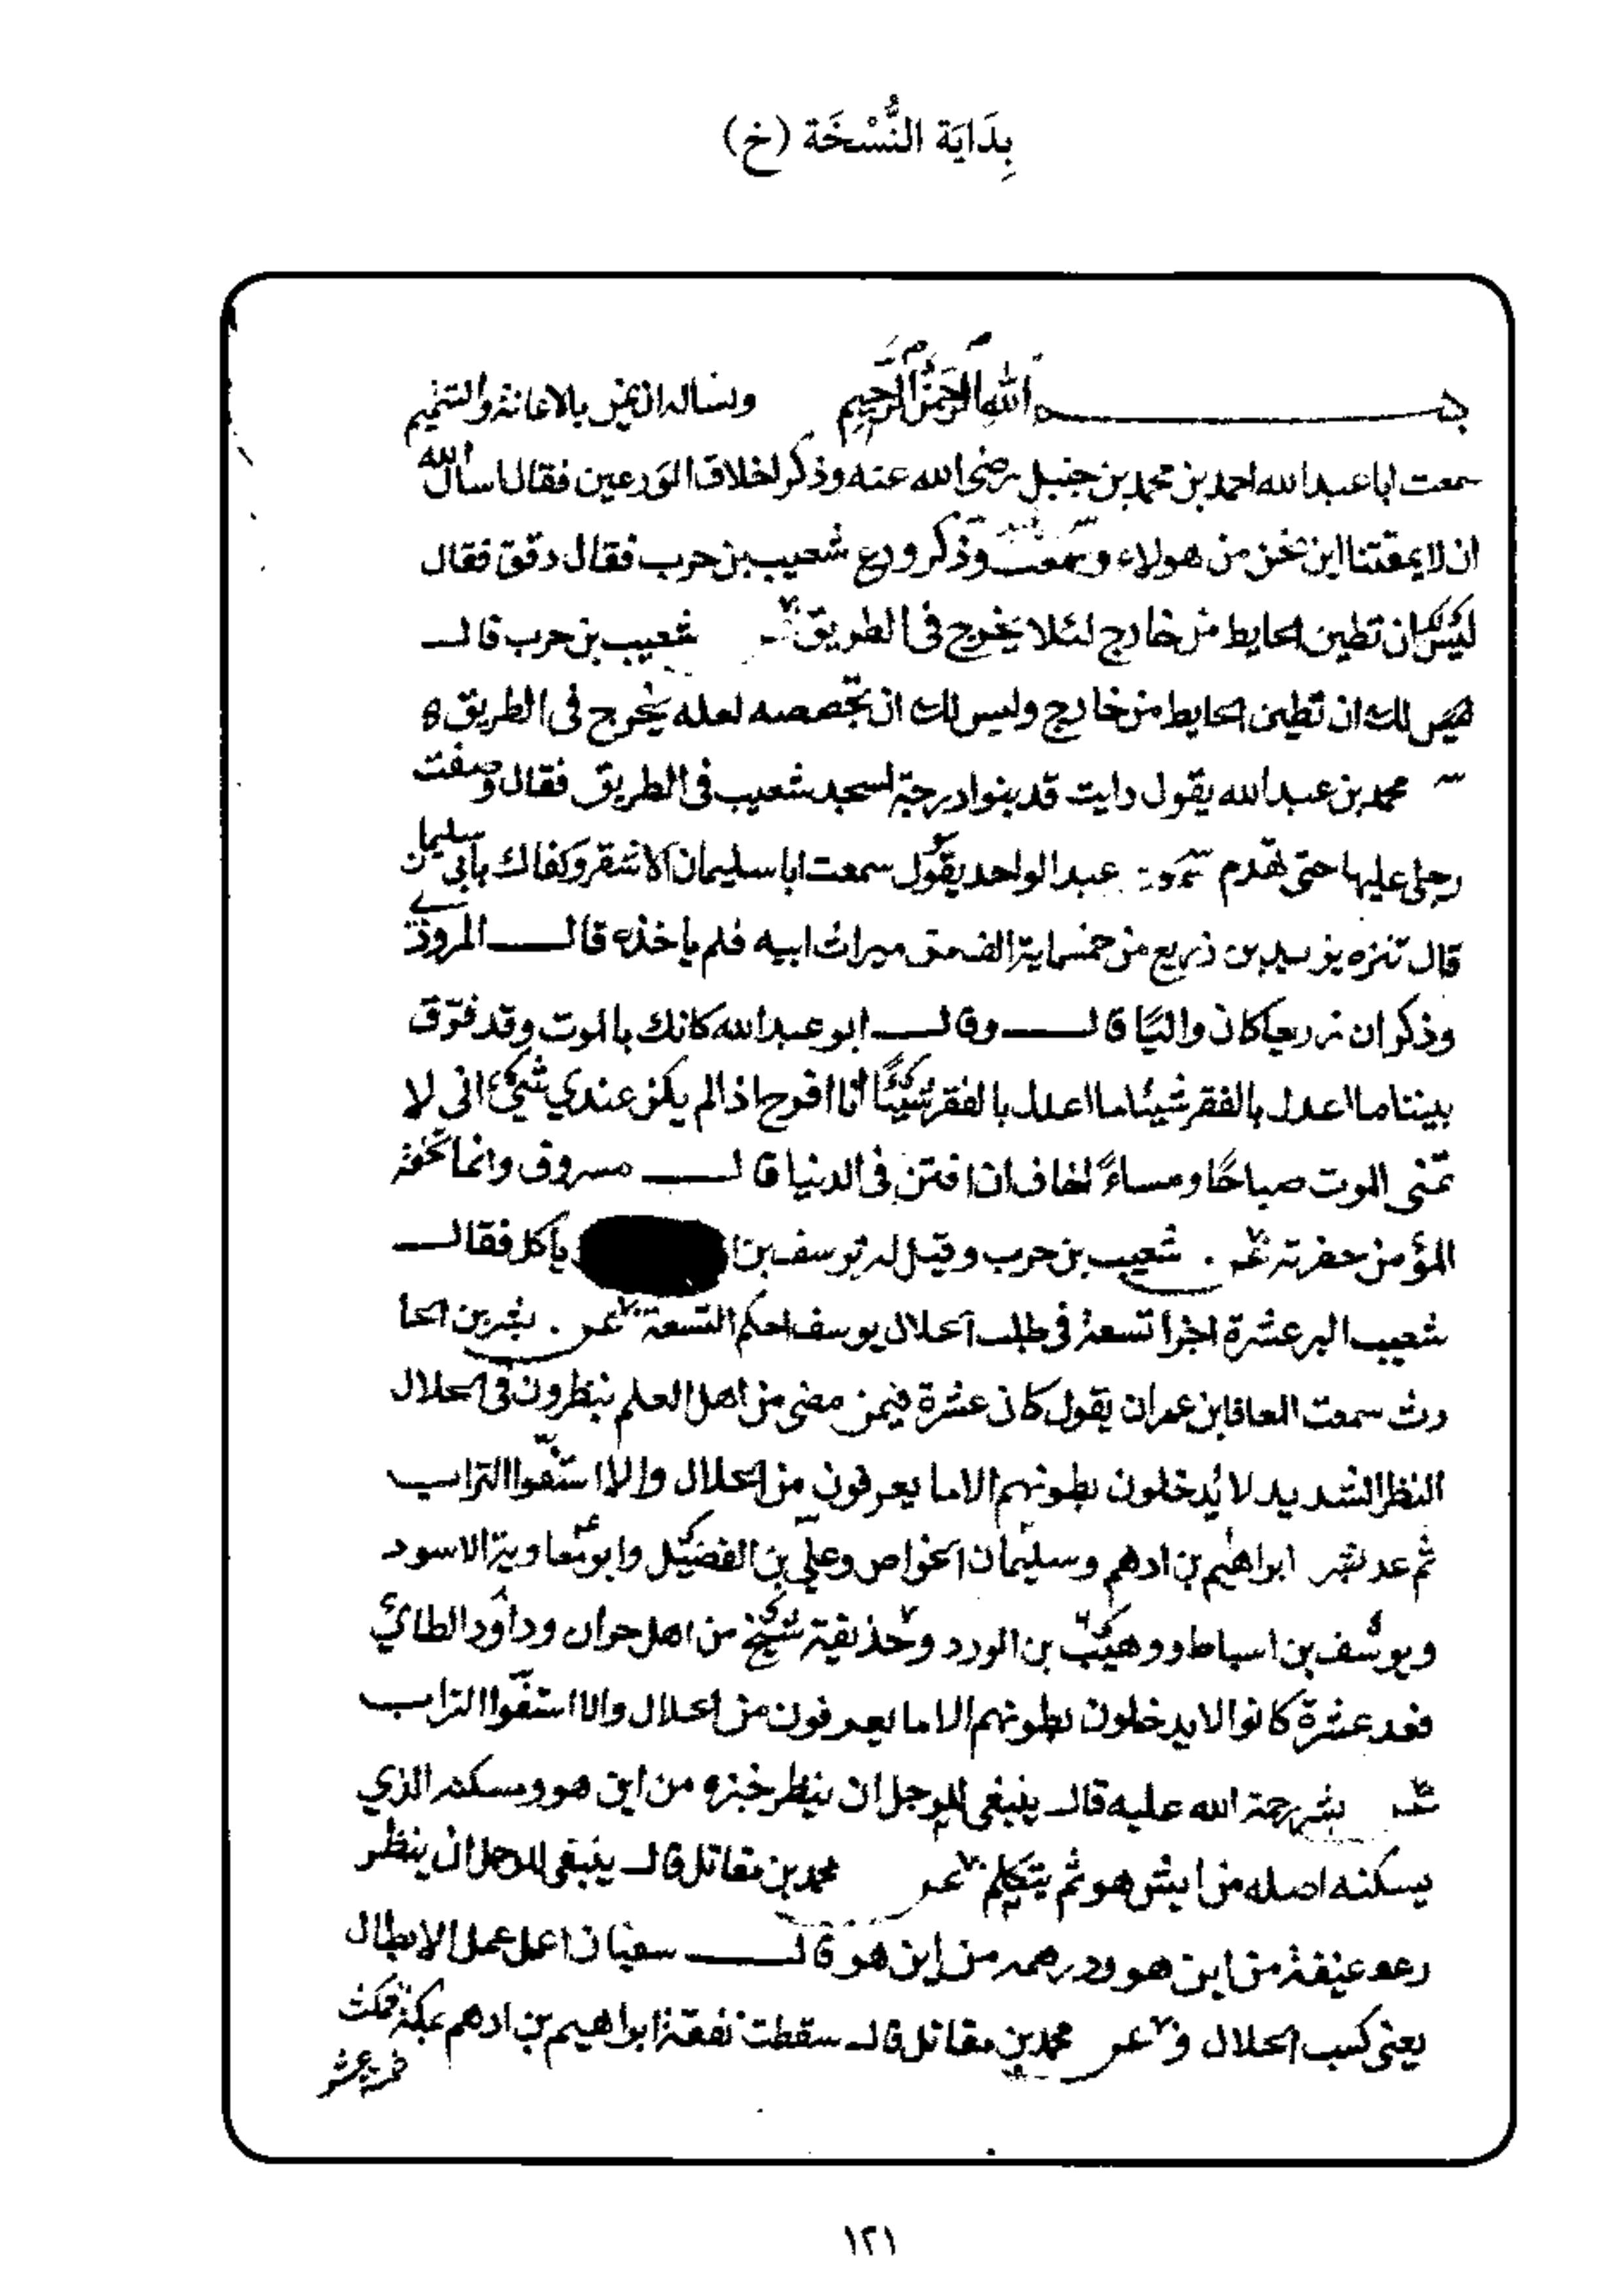 بِدَايَة النُّسْخَة (خ)
بسم الله الرحمن الرحيم ونساله ان يمن بالاعانة والتتميم
سمعت ابا عبد الله احمد بن محمد بن حنبل رضي الله عنه وذكر اخلاق الورعين فقال اسأل الله
ان لا يمقتنا اين نحن من هولاء وسمعت وذكر ورع شعيب بن حرب فقال دقق فقال
ليس لك ان تطين الحايط من خارج لئلا يخرج في الطريق شعيب بن حرب قال
ليس لك ان تطين الحايط من خارج وليس لك ان تجصصه لعله يخرج في الطريق
محمد بن عبد الله يقول رايت قد بنوا درجة لمسجد شعيب في الطريق فقال وضعت
رجلي عليها حتى تهدم سمعت عبد الواحد يقول سمعت ابا سليمان الاشقر وكفاك بابي سليمان
قال تنزه يزيد بن زريع من خمسماية الف من ميراث ابيه فلم ياخذه قال المروذي
وذكر ان زريعا كان واليًا قال وقال ابو عبد الله كانك بالموت وقد فرّق
بيننا ما اعدل بالفقر شيئا ما اعدل بالفقر شيئًا انا افرح اذا لم يكن عندي شيء اني لا
تمنى الموت صباحًا ومساءً اخاف ان افتن في الدنيا قال مسروق وانما تحفة
المؤمن حفرته شعيب بن حرب وقيل له يوسف بن ياكل فقال
شعيب البر عشرة اجزا تسعة في طلب الحلال يوسف احكم التسعة بشر بن الحا
رث سمعت المعافا بن عمران يقول كان عشرة فيمن مضى من اهل العلم ينظرون في الحلال
النظر الشديد لا يُدخلون بطونهم الا ما يعرفون من الحلال والا استفّوا التراب
ثم عد بشر ابراهيم بن ادهم وسليمان الخواص وعلي بن الفضيل وابو معاوية الاسود
ويوسف بن اسباط ووهيب بن الورد وحذيفة شيخ من اهل حران وداود الطائي
فعد عشرة كانوا لا يدخلون بطونهم الا ما يعرفون من الحلال والا استفّوا التراب
بشر رحمة الله عليه قال ينبغي للرجل ان ينظر خبزه من اين هو ومسكنه الذي
يسكنه اصله من ايش هو ثم يتكلم محمد بن مقاتل قال ينبغي للرجل ان ينظر
من اين هو ودرهمه من اين هو قال سفيان اعمل عمل الابطال
يعني كسب الحلال محمد بن مقاتل قال سقطت نفقة ابراهيم بن ادهم بمكة فمكث
خمسة عشر
١٢١